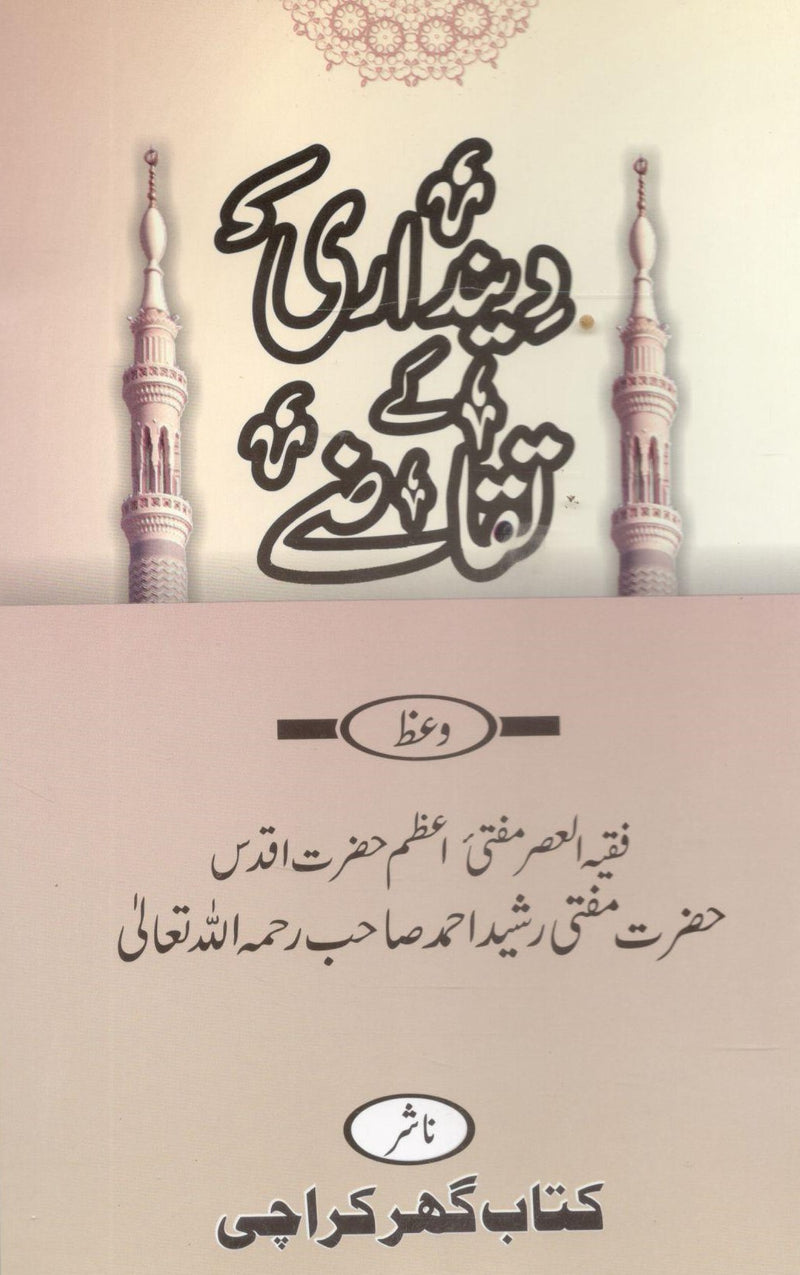 دینداری
کے
تقاضے
وعظ
فقیہ العصر مفتئ اعظم حضرت اقدس
حضرت مفتی رشید احمد صاحب رحمہ اللہ تعالیٰ
ناشر
کتاب گھر کراچی